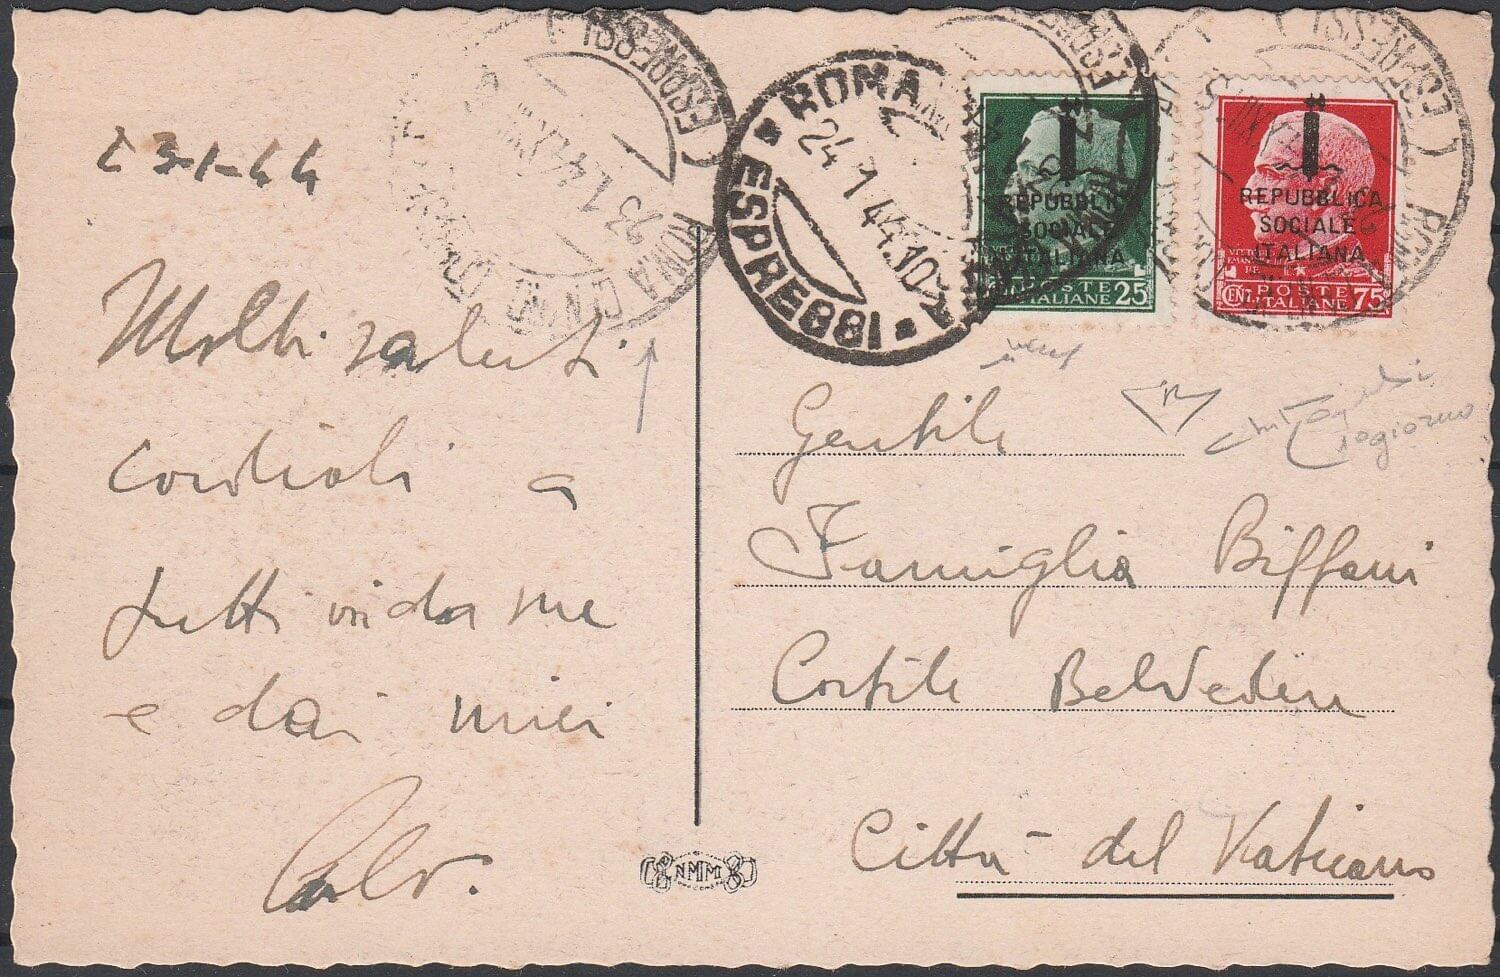 23-1-44
Molti saluti
cordiali a
tutti voi da me
e dai miei
Carlo.
NMM
ROMA CENTRO (ESPRESSI)
23.1.44
ROMA
24.1.44.10
ESPRESSI
REPUBBLICA
SOCIALE
ITALIANA
POSTE
ITALIANE 25
REPUBBLICA
SOCIALE
ITALIANA
POSTE
CENT. ITALIANE 75
(ESPRESSI)
Gentile
Famiglia Biffani
Cortile Belvedere
Città del Vaticano